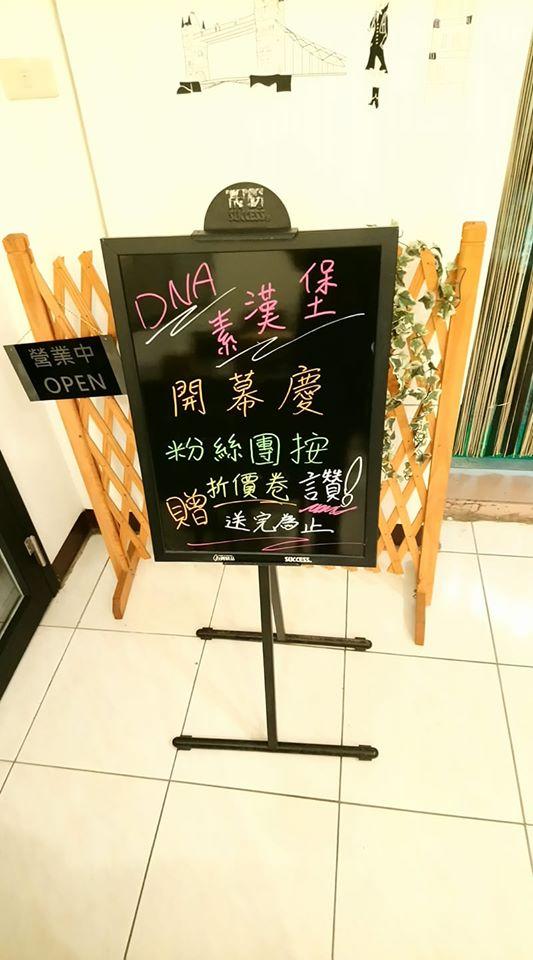 成功
SUCCESS
DNA
素漢堡
開幕慶
粉絲團按
讚!
贈折價卷
送完為止
SUCCESS
營業中
OPEN